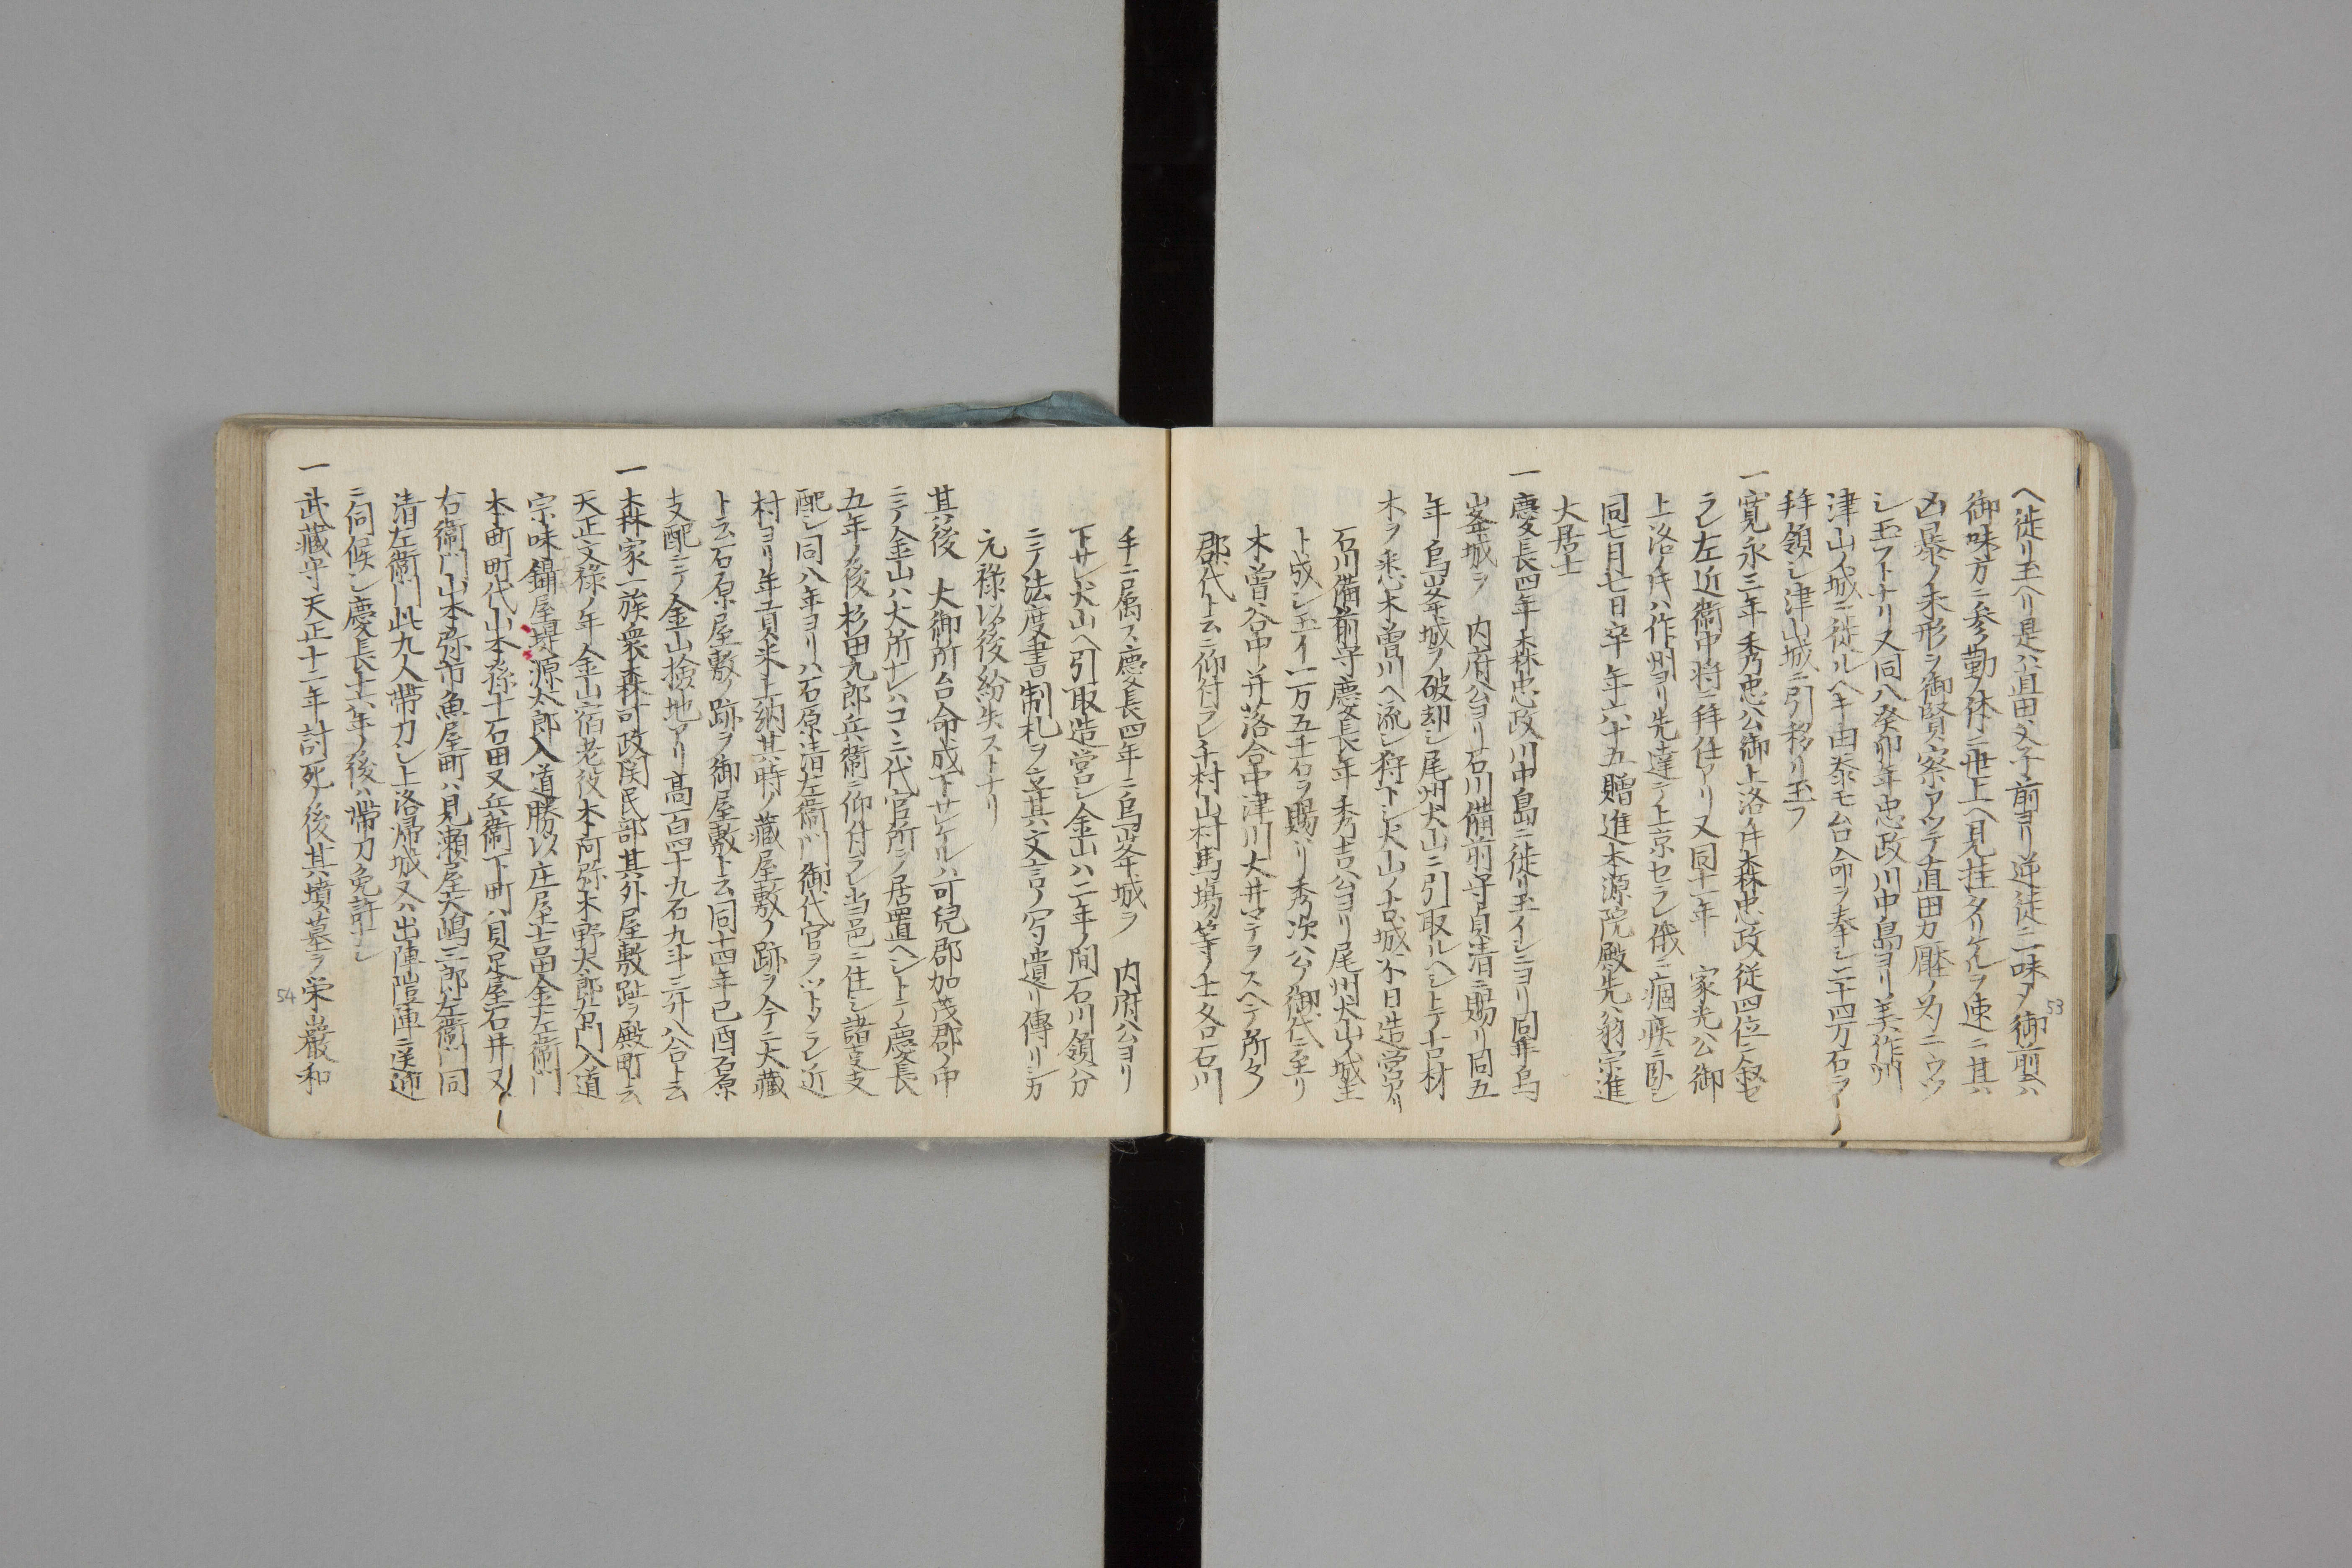 へ徙リ玉ヘリ是ハ直田父子前ヨリ逆徒ニ一味ノ御前ヘハ
御味方ニ参勤ノ体ニ世上ヘ見拄タリケルヲ速ニ其ハ
凶暴ノ未形ヲ御賢察アツテ直田カ壓ノ為ニウツ
シ玉フトナリ又同八癸卯年忠政川中島ヨリ美作州
津山ノ城ニ徙ルヘキ由忝モ台命ヲ奉シ二十四万石ヲ
拜領シ津山城ニ引移リ玉フ
一寛永三年秀忠公御上洛ノ年森忠政従四位ニ叙セ
ラレ左近衛中将ニ拜任アリ又同十一年 家光公御
上洛ノ年ハ作州ヨリ先達テ上京セラレ俄ニ痼疾ニ臥シ
同七月七日卒年六十五贈進本源院殿先翁宗進
大居士
一慶長四年森忠政川中島ニ徙リ玉イシニヨリ同年烏
峯城ヲ 内府公ヨリ石川備前守貞清ニ賜リ同五
年烏峯城ヲ破却シ尾州犬山ニ引取ルヘシトテ古材
木ヲ悉木曽川ヘ流シ狩下シ犬山ノ古城不日造営アリ
石川備前守慶長年秀吉公ヨリ尾州犬山ノ城主
ト成シ玉イ一万五千石ヲ賜ハリ秀次公ノ御代ニ至リ
木曽谷中并落合中津川大井マテヲスヘテ所々
郡代ト云ニ仰付ラレ千村山村馬場等ノ士各石川
手ニ属ス慶長四年ニ烏峯城ヲ 内府公ヨリ
下サレ犬山ヘ引取造営シ金山ハ二年ノ間石川領分
ニテ法度書制札ヲ立其文言ノ写遺リ傳リシカ
元禄以後紛失ストナリ
其後 大御所台命成下サレケルハ可児郡加茂郡ノ中
ニテ金山ハ大所ナレハコヽニ代官所ヲ居置ヘシトテ慶長
五年ノ後杉田九郎兵衛ニ仰付ラレ当邑ニ住シ諸事支
配シ同八年ヨリハ石原清左衛門御代官ヲツトメラレ近
村ヨリ年貢米上納其時ノ藏屋敷ノ跡ヲ今ニ大藏
ト云石原屋敷ノ跡ヲ御屋敷ト云同十四年己酉石原
支配ニテ金山撿地アリ高百四十九石九斗三升八合ト云
一森家一族衆森可政関民部其外屋敷趾ヲ殿町ト云
天正文禄ノ年金山宿老役本阿弥木野太郎右衛門入道
宗味鑷屋堤源太郎入道勝以庄屋吉田金左衛門
本町町代山本孫十石田又兵衛下町ハ具足屋石井又
右衛門山本弥市魚屋町ハ見瀬屋大嶋三郎左衛門同
清左衛門此九人帯刀シ上洛帰城又ハ出陣陸陣ニ送迎
ニ伺候シ慶長十六年ノ後ハ帯刀免許ナシ
一武藏守天正十二年討死ノ後其墳墓ヲ栄山巌和
53
54